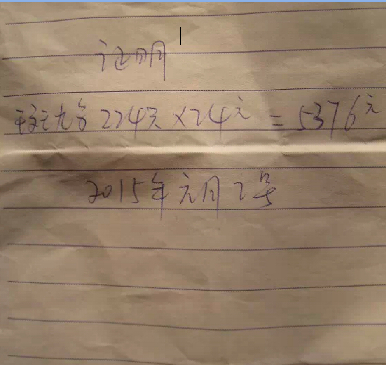 证明
224天×24元=5376元
2015年元月2号